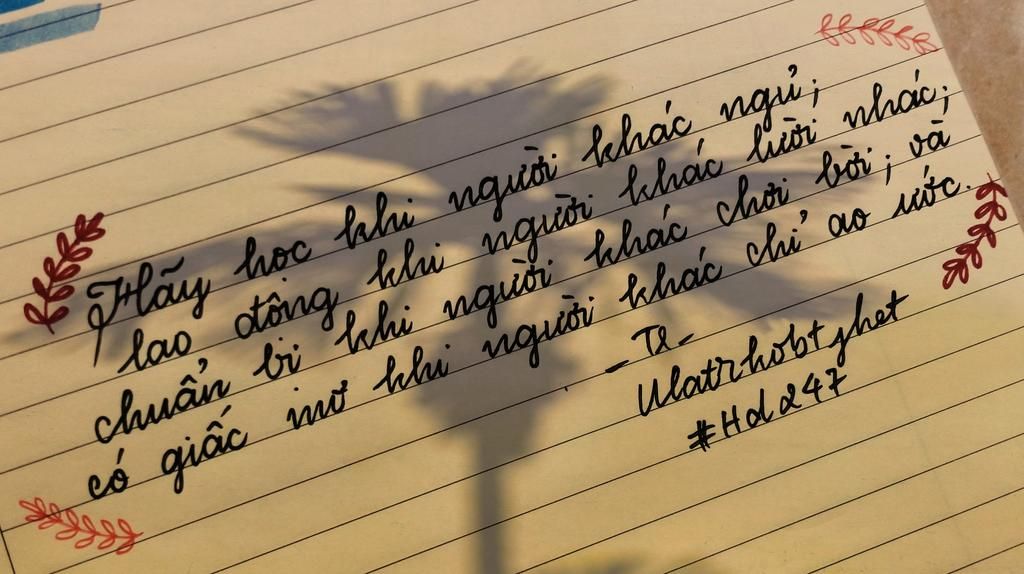 Hãy học khi người khác ngủ;
lao động khi người khác lười nhác;
chuẩn bị khi người khác chơi bời; và
có giấc mơ khi người khác chỉ ao ước.
#Hd247